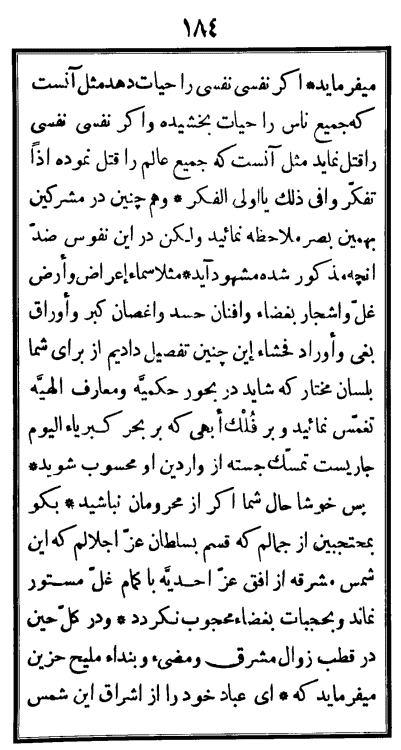 ١٨٤
میفرماید* اکر نفسی نفسی را حیات دهد مثل آنست
که جمیع ناس را حیات بخشیده واکر نفسی نفسی
را قتل نماید مثل آنست که جمیع عالم را قتل نموده اذًا
تفکّروا فی ذلك یا اولی الفکر * وهم چنین در مشرکین
بهمین بصر ملاحظه نمائید ولکن در این نفوس ضدّ
انچه مذکور شده مشهود آید* مثلا سماء إعراض وأرض
غلّ واشجار بغضاء وافنان حسد واغصان کبر وأوراق
بغی وأوراد فحشاء إین چنین تفصیل دادیم از برای شما
بلسان مختار که شاید در بحور حکمیّه ومعارف الهیّه
تغمّس نمائید و بر فُلْك أبهی که بر بحر کبریاء الیوم
جاریست تمسّك جسته از واردین او محسوب شوید*
پس خوشا حال شما اکر از محرومان نباشید * بکو
بمحتجبین از جمالم که قسم بسلطان عزّ اجلالم که این
شمس مشرقه از افق عزّ احدیّه با کمام غلّ مستور
نماند و بحجبات بغضاء محجوب نکردد * ودر کلّ حین
در قطب زوال مشرق ومضیء و بنداء ملیح حزین
میفرماید که * ای عباد خود را از اشراق این شمس